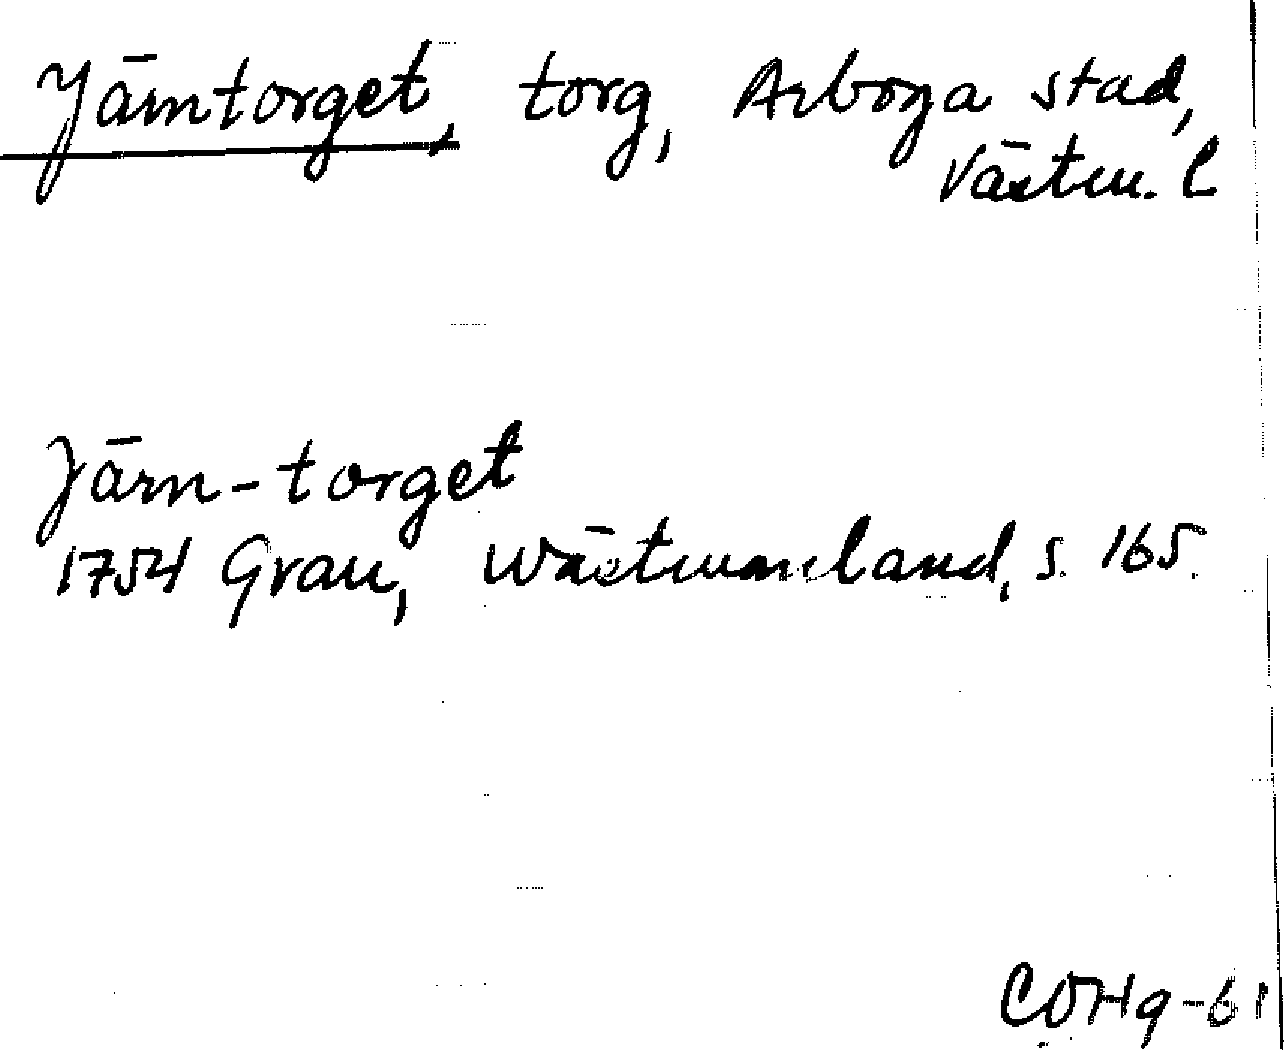 Järntorget, torg, Arboga stad,
Västm. l
Järn-torget
1754 Grau, Wästmanland, s. 165.
COHg-61